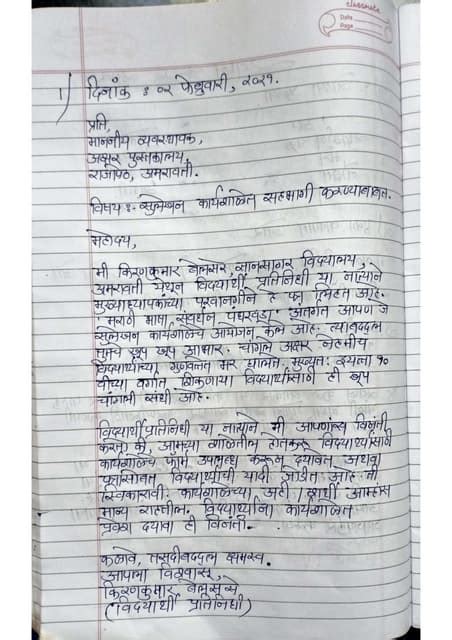 classmate
Date
Page
1) दिनांक : ०२ फेब्रुवारी, २०२१.
प्रति,
माननीय व्यवस्थापक,
अक्षर पुस्तकालय,
राजापेठ, अमरावती.
विषय :- सुलेखन कार्यशाळेत सहभागी करण्याबाबत.
महोदय,
मी किरणकुमार बेलसरे, ज्ञानसागर विद्यालय,
अमरावती येथून विद्यार्थी प्रतिनिधी या नात्याने
मुख्याध्यापकांच्या परवानगीने हे पत्र लिहित आहे.
'मराठी भाषा संवर्धन पंधरवडा' अंतर्गत आपण जे
सुलेखन कार्यशाळेचे आयोजन केले आहे. त्याबद्दल
तुमचे खूप खूप आभार. चांगले अक्षर नेहमीच
विद्यार्थ्यांच्या गुणवत्तेत भर घालते. मुख्यतः इयत्ता १०
वीच्या वर्गात शिकणाऱ्या विद्यार्थ्यांसाठी ही खूप
चांगली संधी आहे.
विद्यार्थी प्रतिनिधी या नात्याने मी आपणांस विनंती
करतो की, आमच्या शाळेतील होतकरू विद्यार्थ्यांसाठी
कार्यशाळेचे फॉर्म उपलब्ध करून दयावेत अथवा
पत्रासोबत विद्यार्थ्यांची यादी जोडीत आहे ती
स्विकारावी. कार्यशाळेच्या अटी / शर्थी आम्हास
मान्य राहतील. विद्यार्थ्यांना कार्यशाळेत
प्रवेश दयावा ही विनंती.
कळावे, तसदीबद्दल क्षमस्व.
आपला विश्वासू,
किरणकुमार बेलसरे
(विद्यार्थी प्रतिनिधी)